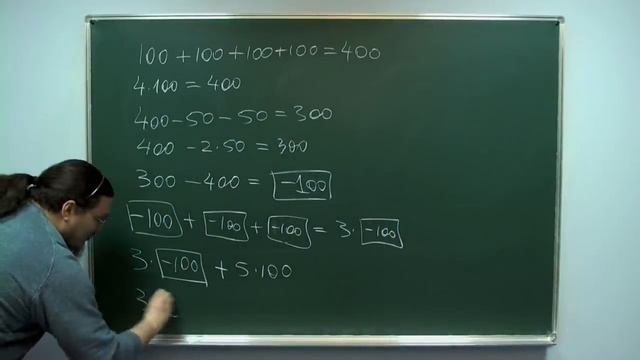 100 + 100 + 100 + 100 = 400
4·100 = 400
400 - 50 - 50 = 300
400 - 2·50 = 300
300 - 400 = -100
-100 + -100 + -100 = 3· -100
3· -100 + 5·100
3